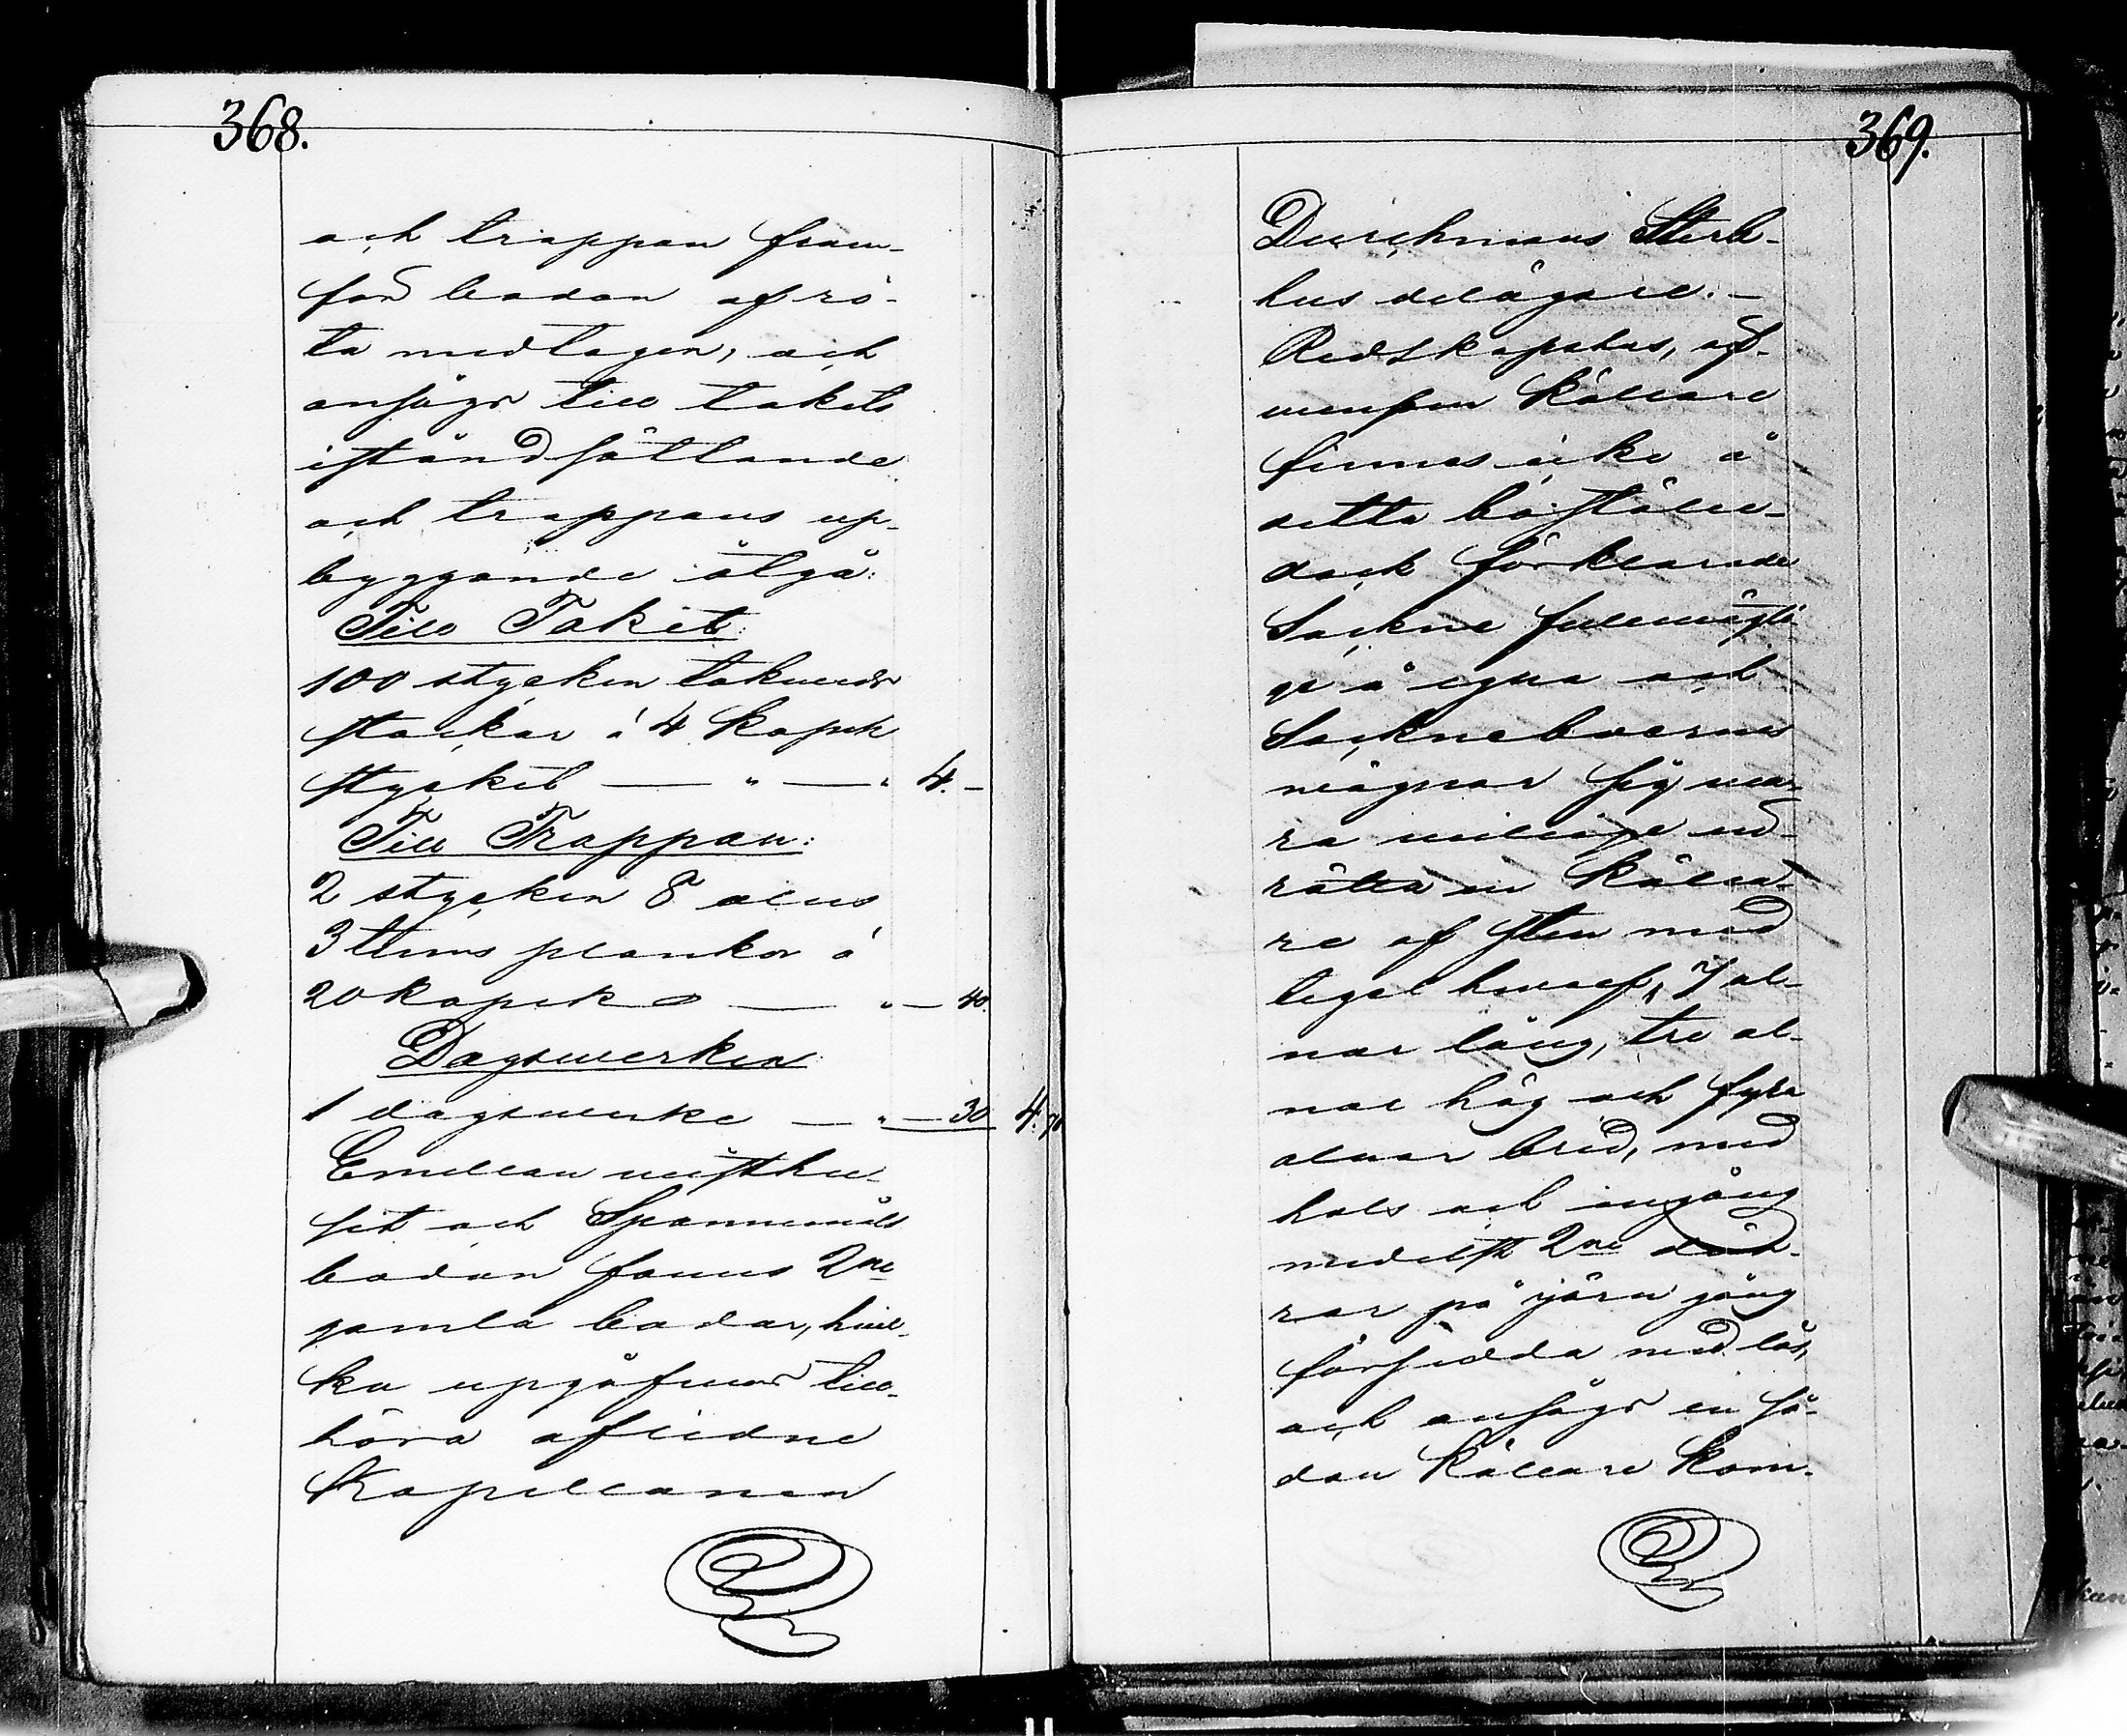 368.
och trappan fram-
för bodan af rö-
ta medtagen, och
ansågs till takets
iståndsättande
och trappans up-
byggande åtgå:
Till Taket:
100 stycken takveds
stockar á 4 kopek
stycket — " — " 4. -
Till Trappan:
2 stycken 8 alns
3 tums plankor á
20 kopek — " — 40.
Dagsverken
1 dagsverke — " — 30 4. 70
Emellan visthu-
set och Spannmåls
bodan fanns 2ne
gamla bodar, hvil-
ka uppgåfvos till-
höra aflidne
Kapellanen
369.
Durchmans Sterb-
hus delägare. -
Redskapshus, äf-
vensom Källare
finnes icke å
detta boställe -
dock förklarade
Sockne fullmägti
ge å egna och
Sockneboernes
vägnar sig va-
ra villige up-
rätta en källa-
re af sten med
tegel hvalf, 7 al-
nar lång, tre al-
nar hög och fyra
alnar bred, med
hals och ingång
medelst 2ne dör-
rar på jern gång
försedda med lås,
och ansågs en så-
dan källare kom-